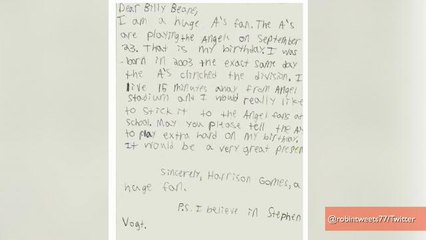 Dear Billy Beane,
I am a huge A's fan. The A's
are playing the Angels on September
23. That is my birthday. I was
born in 2003 the exact same day
the A's clinched the division. I
live 15 minutes away from Angel
stadium and I would really like
to stick it to the Angel fans at
school. May you please tell the A's
to play extra hard on my birthday.
It would be a very great present
Sincerely, Harrison Gomes, a
huge fan.
P.S. I believe in Stephen
Vogt.
@robintweets77/Twitter